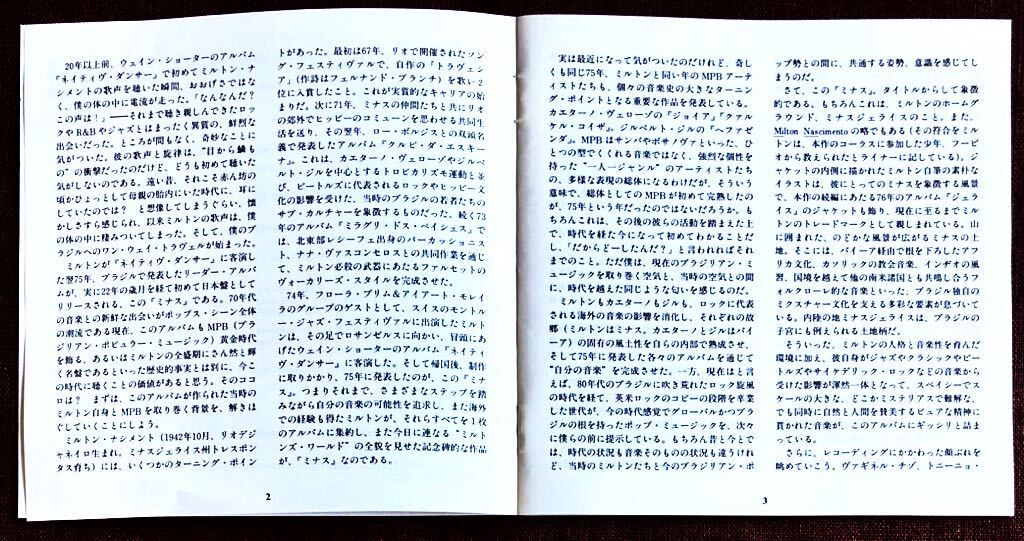 20年以上前、ウェイン・ショーターのアルバム
『ネイティヴ・ダンサー』で初めてミルトン・ナ
シメントの歌声を聴いた瞬間、おおげさではな
く、僕の体の中に電流が走った。「なんなんだ?
この声は!」――それまで聴き親しんできたロッ
クやR&Bやジャズとはまったく異質の、鮮烈な
出会いだった。ところが間もなく、奇妙なことに
気がついた。彼の歌声と旋律は、"目から鱗も
の"の衝撃だったのだけど、どうも初めて聴いた
気がしないのである。遠い昔、それこそ赤ん坊の
頃かひょっとして母親の胎内にいた時代に、耳に
していたのでは? と想像してしまうぐらい、懐
かしさすら感じられ、以来ミルトンの歌声は、僕
の体の中に棲みついてしまった。そして、僕のブ
ラジルへのワン・ウェイ・トラヴェルが始まった。
ミルトンが『ネイティヴ・ダンサー』に客演し
た翌75年、ブラジルで発表したリーダー・アルバ
ムが、実に22年の歳月を経て初めて日本盤として
リリースされる、この『ミナス』である。70年代
の音楽との新鮮な出会いがポップス・シーン全体
の潮流である現在、このアルバムもMPB(ブラ
ジリアン・ポピュラー・ミュージック)黄金時代
を飾る、あるいはミルトンの全盛期にさん然と輝
く名盤であるといった歴史的事実とは別に、今こ
の時代に聴くことの価値があると思う。そのココ
ロは? まずは、このアルバムが作られた当時の
ミルトン自身とMPBを取り巻く背景を、解きほ
ぐしていくことにしよう。
ミルトン・ナシメント(1942年10月、リオデジ
ャネイロ生まれ。ミナスジェライス州トレスポン
タス育ち)には、いくつかのターニング・ポイン
トがあった。最初は67年、リオで開催されたソン
グ・フェスティヴァルで、自作の「トラヴェシ
ア」(作詩はフェルナンド・ブランチ)を歌い2
位に入賞したこと。これが実質的なキャリアの始
まりだ。次に71年、ミナスの仲間たちと共にリオ
の郊外でヒッピーのコミューンを思わせる共同生
活を送り、その翌年、ロー・ボルジスとの双頭名
義で発表したアルバム『クルビ・ダ・エスキー
ナ』。これは、カエターノ・ヴェローゾやジルベ
ルト・ジルを中心とするトロピカリズモ運動と並
び、ビートルズに代表されるロックやヒッピー文
化の影響を受けた、当時のブラジルの若者たちの
サブ・カルチャーを象徴するものだった。続く73
年のアルバム『ミラグリ・ドス・ペイシェス』で
は、北東部レシーフェ出身のパーカッショニス
ト、ナナ・ヴァスコンセロスとの共同作業を通じ
て、ミルトン必殺の武器にあたるファルセットの
ヴォーカリーズ・スタイルを完成させた。
74年、フローラ・プリム&アイアート・モレイ
ラのグループのゲストとして、スイスのモントル
ー・ジャズ・フェスティヴァルに出演したミルト
ンは、その足でロサンゼルスに向かい、冒頭にあ
げたウェイン・ショーターのアルバム『ネイティ
ヴ・ダンサー』に客演した。そして帰国後、制作
に取りかかり、75年に発表したのが、この『ミナ
ス』。つまりそれまで、さまざまなステップを踏
みながら自分の音楽の可能性を追求し、また海外
での経験も得たミルトンが、それらすべてを1枚
のアルバムに集約し、また今日に連なる"ミルト
ンズ・ワールド"の全貌を見せた記念碑的な作品
が、『ミナス』なのである。
2
実は最近になって気がついたのだけれど、奇し
くも同じ75年、ミルトンと同い年のMPBアーテ
ィストたちも、個々の音楽史の大きなターニン
グ・ポイントとなる重要な作品を発表している。
カエターノ・ヴェローゾの『ジョイア』『クァル
ケル・コイザ』。ジルベルト・ジルの『ヘファゼ
ンダ』。MPBはサンバやボサノヴァといった、ひ
とつの型でくくれる音楽ではなく、強烈な個性を
持った"一人一ジャンル"のアーティストたち
の、多様な表現の総体になるわけだが、そういう
意味で、総体としてのMPBが初めて完熟したの
が、75年という年だったのではないだろうか。も
ちろんこれは、その後の彼らの活動を踏まえた上
で、時代を経た今になって初めてわかることだ
し、「だからどーしたんだ?」と言われればそれ
までのこと。ただ僕は、現在のブラジリアン・ミ
ュージックを取り巻く空気と、当時の空気との間
に、時代を越えた同じような匂いを感じるのだ。
ミルトンもカエターノもジルも、ロックに代表
される海外の音楽の影響を消化し、それぞれの故
郷(ミルトンはミナス。カエターノとジルはバイ
ーア)の固有の風土性を自らの内部で熟成させ、
そして75年に発表した各々のアルバムを通じて
"自分の音楽"を完成させた。一方、現在はと言
えば、80年代のブラジルに吹き荒れたロック旋風
の時代を経て、英米ロックのコピーの段階を卒業
した世代が、今の時代感覚でグローバルかつブラ
ジルの根を持ったポップ・ミュージックを、次々
に僕らの前に提示している。もちろん昔と今とで
は、時代の状況も音楽そのものの状況も違うけれ
ど、当時のミルトンたちと今のブラジリアン・ポ
ップ勢との間に、共通する姿勢、意識を感じてし
まうのだ。
さて、この『ミナス』。タイトルからして象徴
的である。もちろんこれは、ミルトンのホームグ
ラウンド、ミナスジェライスのこと。また、
Milton Nascimentoの略でもある(その符合をミル
トンは、本作のコーラスに参加した少年、フービ
オから教えられたとライナーに記している)。ジ
ャケットの内側に描かれたミルトン自筆の素朴な
イラストは、彼にとってのミナスを象徴する風景
で、本作の続編にあたる76年のアルバム『ジェラ
イス』のジャケットも飾り、現在に至るまでミル
トンのトレードマークとして親しまれている。山
に囲まれた、のどかな風景が広がるミナスの土
地。そこには、バイーア経由で根を下ろしたアフ
リカ文化、カソリックの教会音楽、インヂオの風
習、国境を越えて他の南米諸国とも共鳴し合うフ
ォルクローレ的な音楽といった、ブラジル独自の
ミクスチャー文化を支える多彩な要素が息づいて
いる。内陸の地ミナスジェライスは、ブラジルの
子宮にも例えられる土地柄だ。
そういった、ミルトンの人格と音楽性を育んだ
環境に加え、彼自身がジャズやクラシックやビー
トルズやサイケデリック・ロックなどの音楽から
受けた影響が渾然一体となって、スペイシーでス
ケールの大きな、どこかミステリアスで難解な、
でも同時に自然と人間を賛美するピュアな精神に
貫かれた音楽が、このアルバムにギッシリと詰ま
っている。
さらに、レコーディングにかかわった顔ぶれを
眺めていこう。ヴァギネル・チゾ、トニーニョ・
3